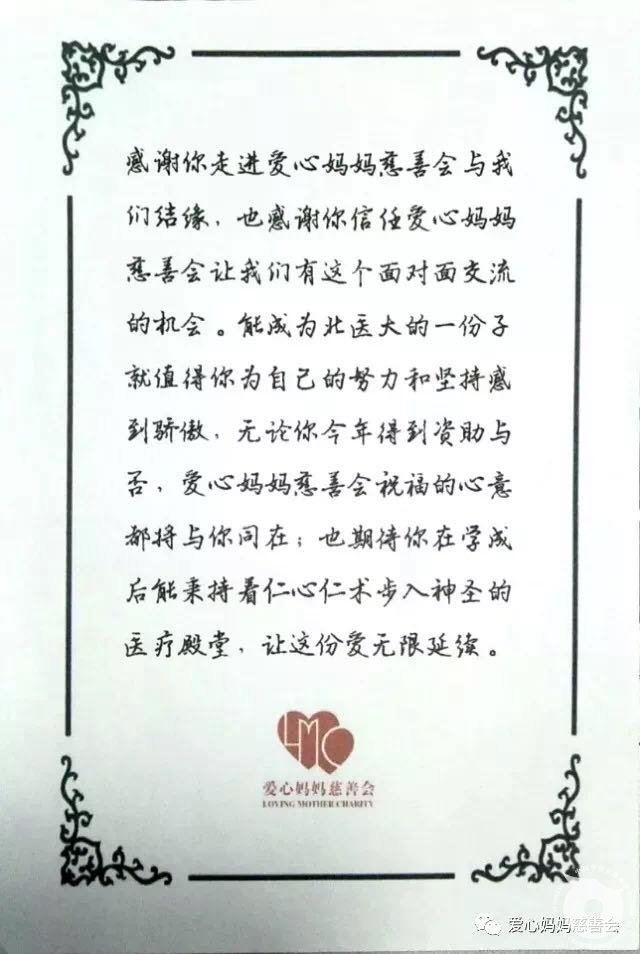 感谢你走进爱心妈妈慈善会与我
们结缘，也感谢你信任爱心妈妈
慈善会让我们有这个面对面交流
的机会。能成为北医大的一份子
就值得你为自己的努力和坚持感
到骄傲，无论你今年得到资助与
否，爱心妈妈慈善会祝福的心意
都将与你同在；也期待你在学成
后能秉持着仁心仁术步入神圣的
医疗殿堂，让这份爱无限延续。
LMC
爱心妈妈慈善会
LOVING MOTHER CHARITY
爱心妈妈慈善会